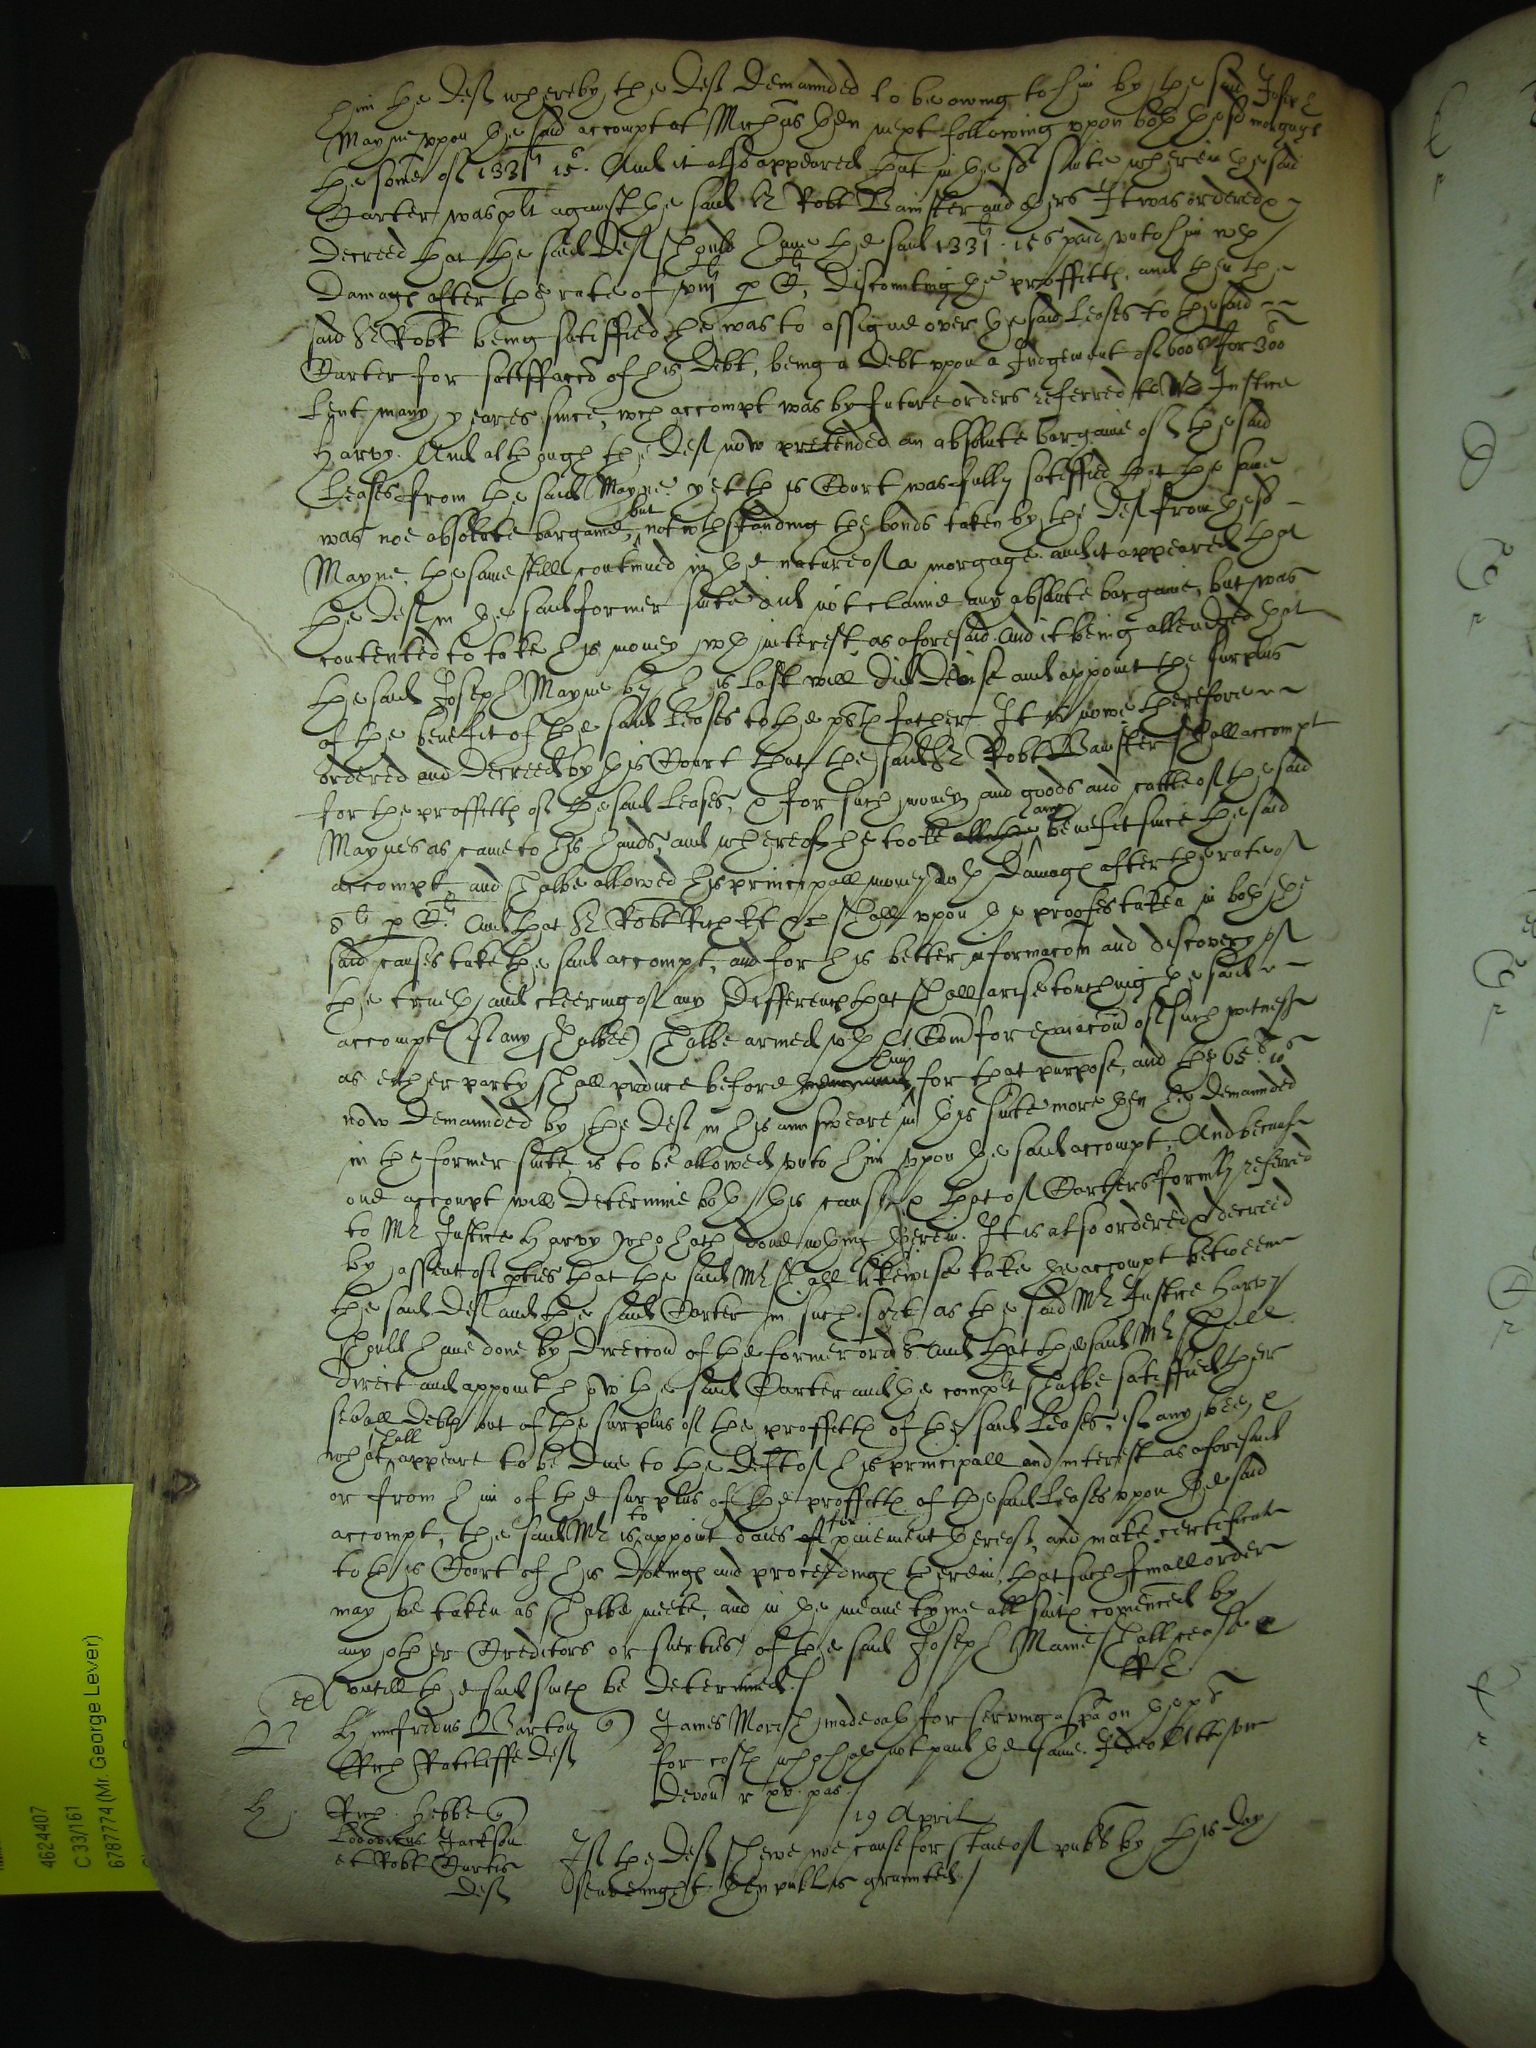 him the Deft whereby the Deft demannded to be owing to him by the said Joseph
Mayne vpon the said accompt at Michas then next following vpon both the sd morgage
the some of 1331li 15s. And it also appeared that in the sd suite wherein the said
Carter was plt against the said Sr Robt Banister and others It was ordered &
decreed that the said Deft should have the said 1331li. 15s paid vnto him wth
damage after the rate of viijli p Ct, discounting the proffitts, and then the
said Sr Robt being satisffied he was to assigne over the said Leases to the said
Carter for satisffaccon of his Debt, being a Debt vpon a Judgement of 600li for 300li
Lent many yeares since, wch accompt was by future orders referred to Mr Justice
Harvy. And although the Deft now pretended an absolute bargaine of the said
Leases from the said Mayne, yet this Court was fully satisffied that the same
was noe absolute bargaine, but notwthstanding the bonds taken by the Deft from the sd
Mayne, the same still contineued in the nature of a morgage. and it appeared that
the Deft in the said former suite did not claime any absolute bargaine, but was
contented to take his money wth interest as aforesaid. And it being alleadged that
the said Joseph Mayne by his last will did devise and appoint the surplus
of the benefit of the said Leases to the plts father. It is nowe therefore
ordered and decreed by this Court that the said Sr Robt Banister shall accompt
for the proffitts of the said Leases, & for such money and goods and cattle of the said
Maynes as came to his hands, and whereof he tooke any benefit since the said
accompt, and shalbe allowed his principall money wth Damage after the rate of
8li p Ct. And that Sr Robt Rich kt &c shall vpon the proofes taken in both the
said causes take the said accompt, and for his better informacon and discovery of
the trueth and cleering of any Difference that shall arise touching the said
accompt (if any shalbe) shalbe armed wth a Comn for examinacon of such witnesses
as either party shall produce before him for that purpose, and the 65li 10s
now demannded by the Deft in his answeare in this suite more then he demannded
in the former suite is to be allowed vnto him vpon the said accompt, And because
one accompt will determine both this cause & that of Carters formly referred
to Mr Justice Harvy who hath done nothing therein. It is also ordered & decreed
by assent of pties that the said Mr shall likewise take the accompt betweene
the said Deft and the said Carter in such sort as the said Mr Justice Harvy
should have done by direccon of the former order And that the said Mr shall
direct and appoint how the said Carter and the complt shalbe satisffied their
sevall Debts out of the surplus of the proffitts of the said Leases, if any bee, &
what shall appeare to be due to the Deft of his principall and interest as aforesaid
or from him of the surplus of the proffitts of the said Leases vpon the said
accompt, the said Mr is to appoint daies for paiement thereof, and make certificate
to this Court of his doeings and proceedings therein, that such finall order
may be taken as shalbe meete, and in the meane tyme all suits comenced by
any other Creditors or suerties of the said Joseph Maine shall cease
vntill the said suits be determined./
ex
Humfridus Barton
Ratcliffe Deft
James Morish made oath for serving a spa on the
for costs who hath not paid the same. Ideo
Devon r xv. pas.
H
Rich. Hebbe
Lodovicus Jackson
et Robt Curtis
Deft
19 April
If the Deft shewe noe cause for staie of publi by this day
seavenight then publi is graunted./
4624407
C 33/161
6787774 (Mr. George Lever)